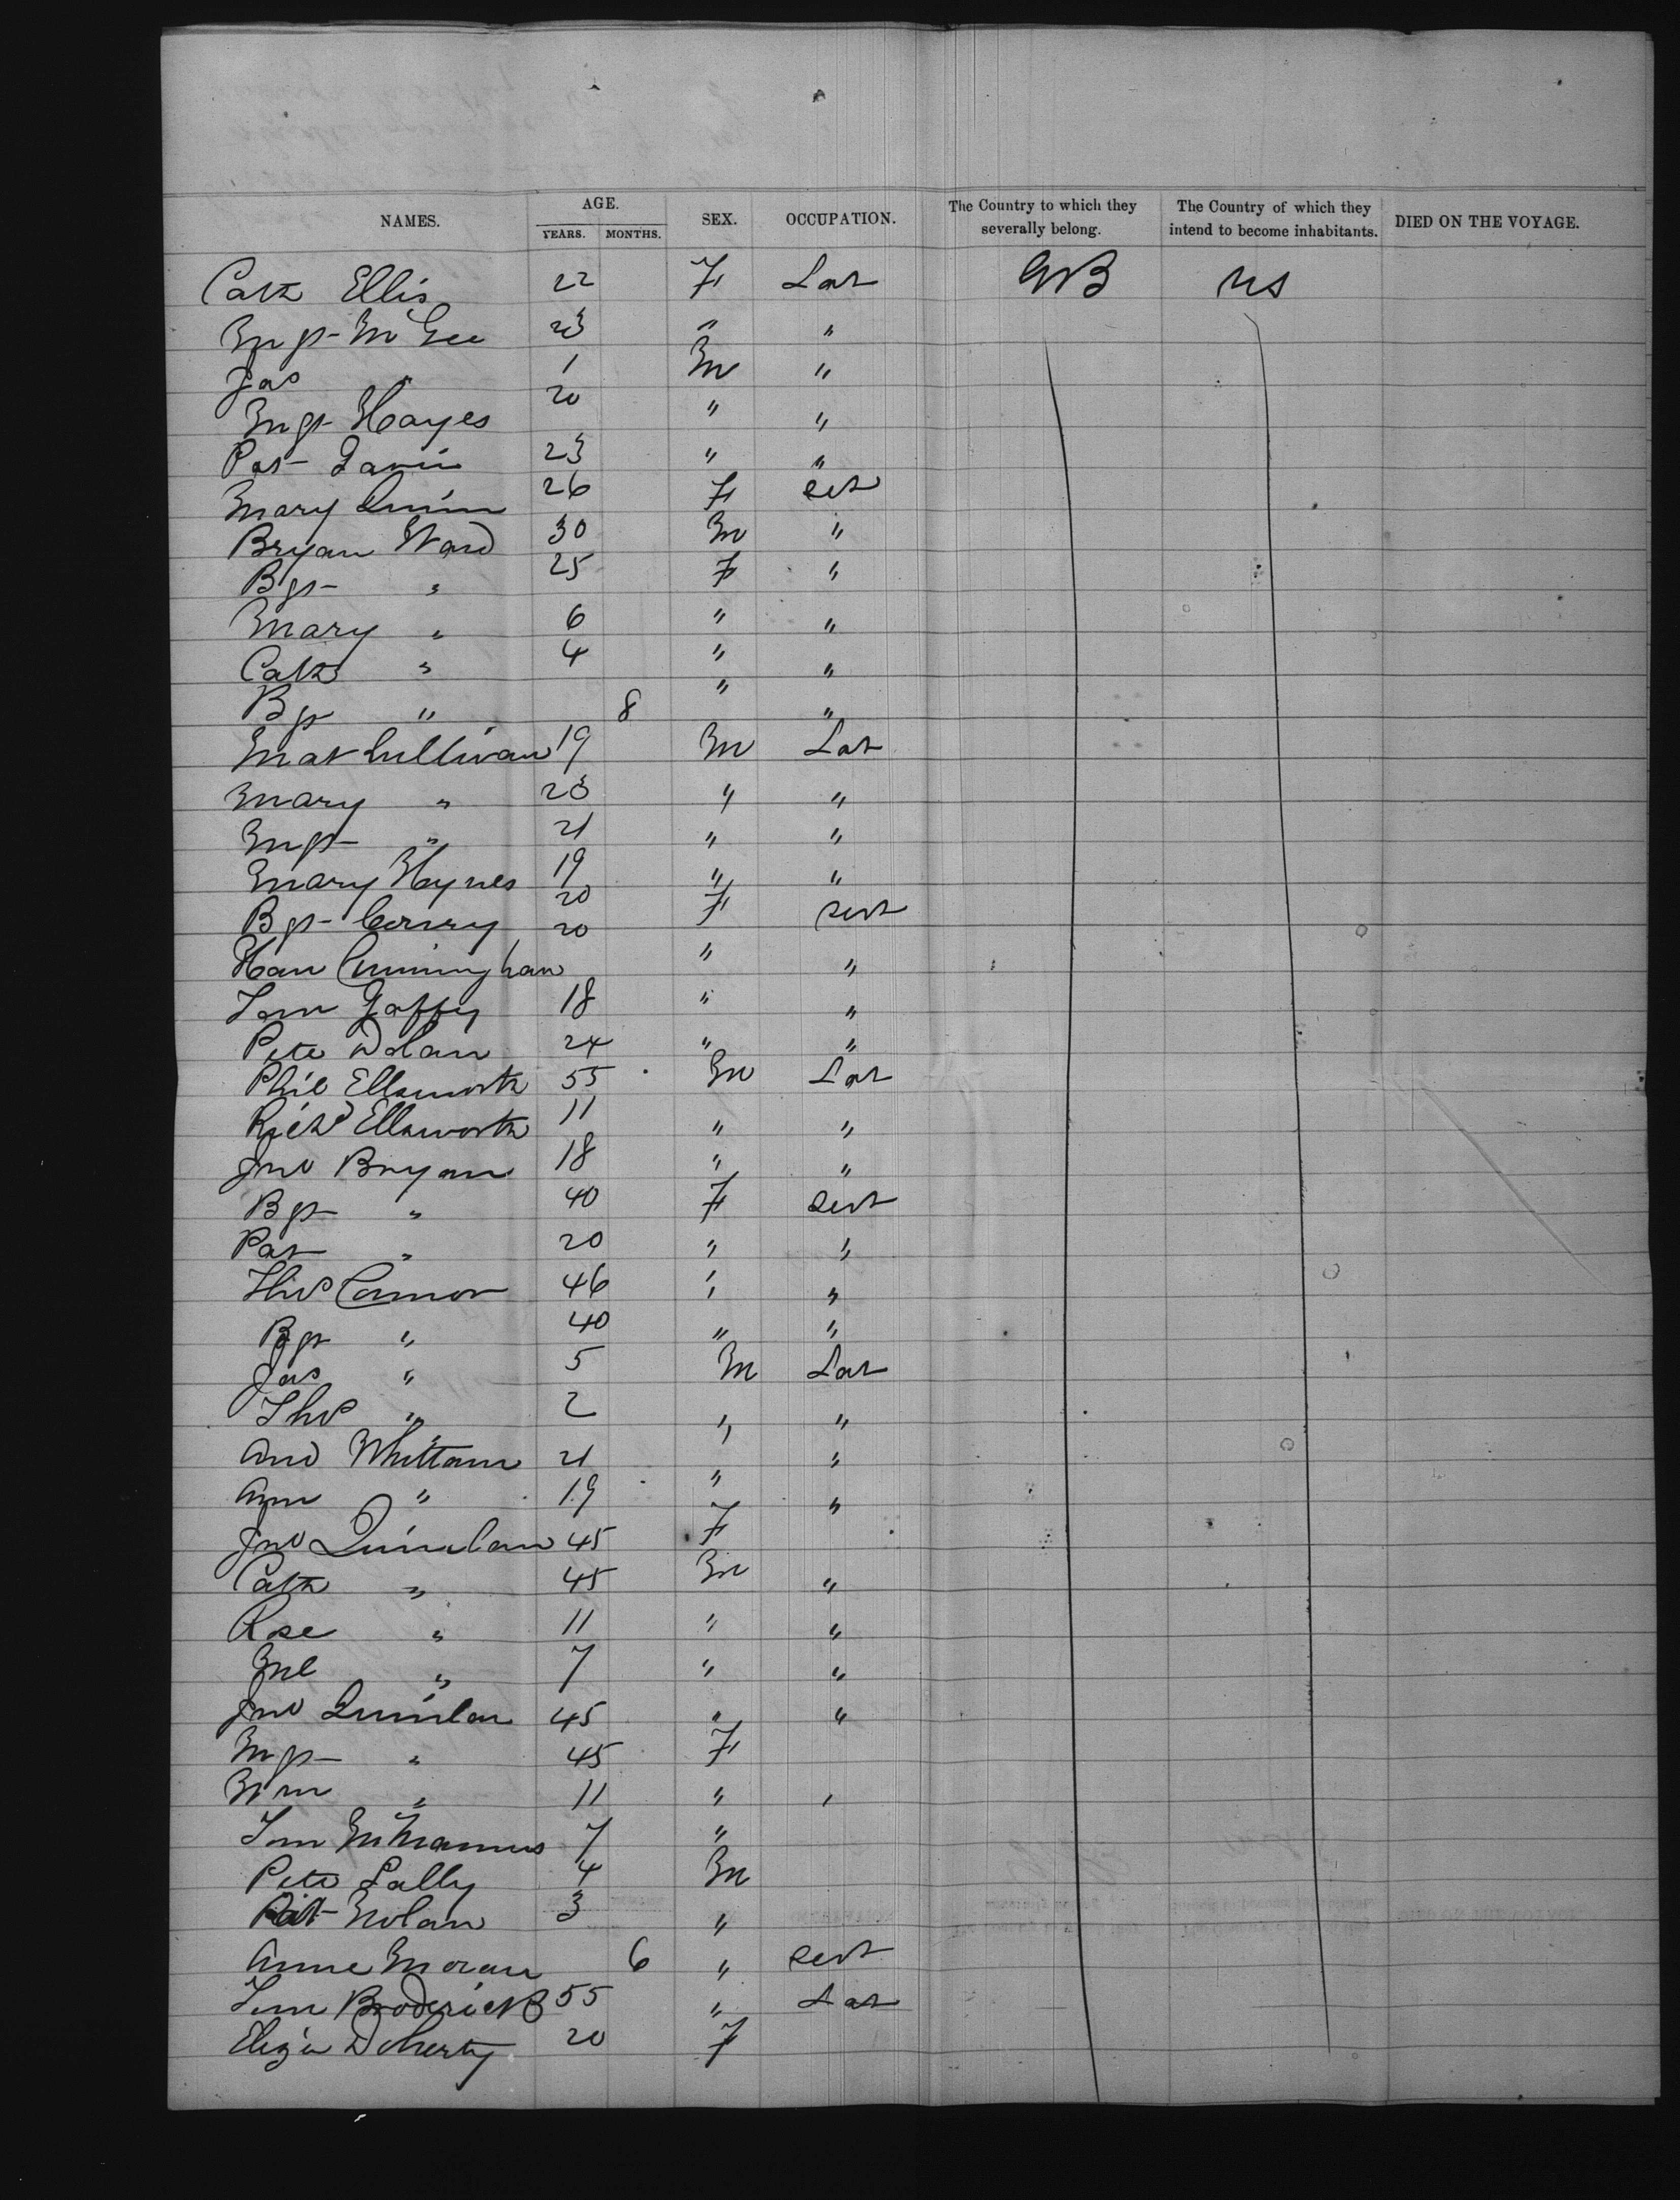 NAMES. AGE. YEARS. MONTHS. SEX. OCCUPATION. The Country to which they severally belong. The Country of which they intend to become inhabitants. DIED ON THE VOYAGE.
Cath Ellis 22 F Lab GB US
Mgt McGee 23 " "
Jas " 1 M "
Mgt Hayes 20 " "
Pat 23 " "
Mary Quinn 26 F Sevt
Bryan Ward 30 M "
Bgt " 25 F "
Mary " 6 " "
Cath " 4 " "
Bgt " 8 " "
Mat Sullivan 19 M Lab
Mary " 23 " "
Mgt " 21 " "
Mary Hynes 19 " "
Bgt Corry 20 F Sevt
Han Cunningham 20 " "
Tom Gaffey 18 " "
Pete Dolan 24 " "
Phil Ellsworth 55 M Lab
Richd Ellsworth 11 " "
Jno Bryan 18 " "
Bgt " 40 F Sevt
Pat " 20 " "
Thos Connor 46 " "
Bgt " 40 " "
Jas " 5 M Lab
Thos " 2 " "
And Whittam 21 " "
Ann " 19 " "
Jno Quinlan 45 F
Cath " 45 M "
Rose " 11 " "
Ml " 7 " "
Jno Quinlan 45 " "
Mgt " 45 F
Wm " 11 " "
Tom McManus 7 "
Pete Lally 4 M
Pat Nolan 3 "
Anne Moran 6 " Sevt
Tim Broderick 55 " Lab
Eliza Doherty 20 F